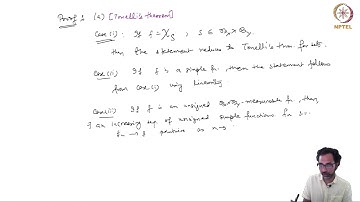 Proof: (a) [Tonelli's theorem]
NPTEL
Case (i): If f = χ_S, S ∈ B_X × B_Y
then the statement reduces to Tonelli's thm for sets.
Case (ii) If f is a simple fn, then the statement follows
from case (i) using linearity
Case (iii) If f is an unsigned B_X × B_Y-measurable fn, then
∃ an increasing seq. of unsigned simple functions fn s.t.
fn → f pointwise as n→